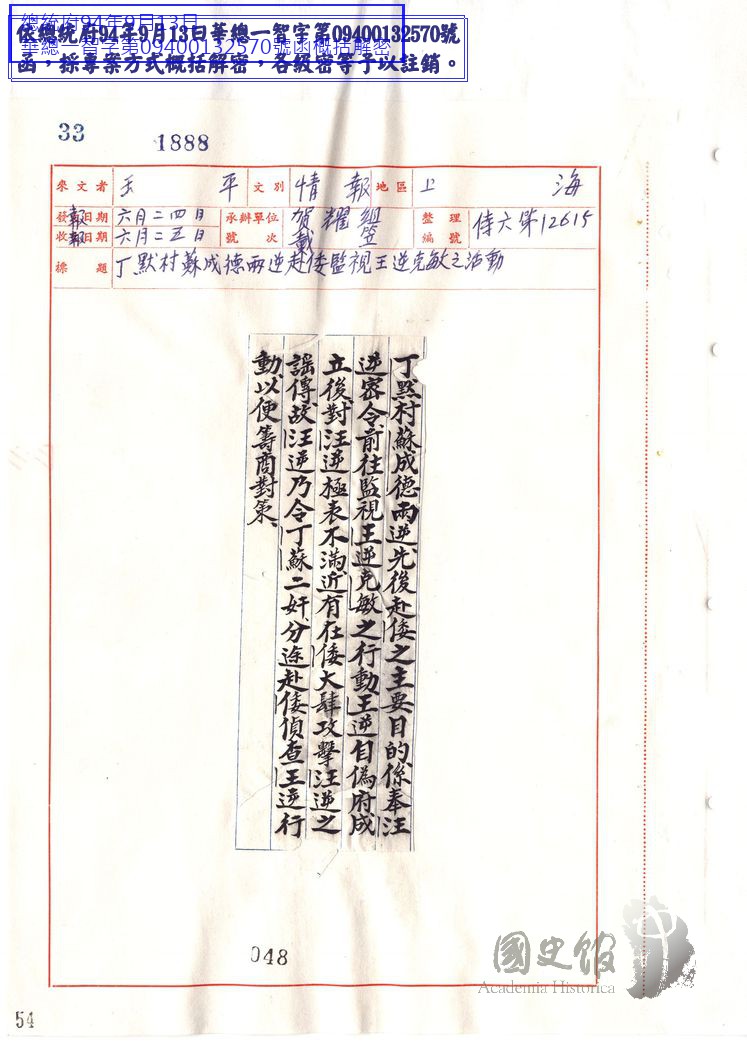 總統府94年9月13日
華總一智字第09400132570號函概括解密
依總統府94年9月13日華總一智字第09400132570號
函，採專案方式概括解密，各級密等予以註銷。
33
1888
來文者 王平 文別 情報 地區 上海
發報日期 六月二四日 承辦單位 賀耀組 整理 侍六第12615
收報日期 六月二五日 號次 戴笠 編號
標題 丁默村蘇成德兩逆赴倭監視王逆克敏之活動
丁默村蘇成德兩逆先後赴倭之主要目的係奉汪
逆密令前往監視王逆克敏之行動王逆自偽府成
立後對汪逆極表不滿近有在倭大肆攻擊汪逆之
謠傳故汪逆乃令丁蘇二奸分途赴倭偵查王逆行
動、以便籌商對策、
048
國史館
Academia Historica
54